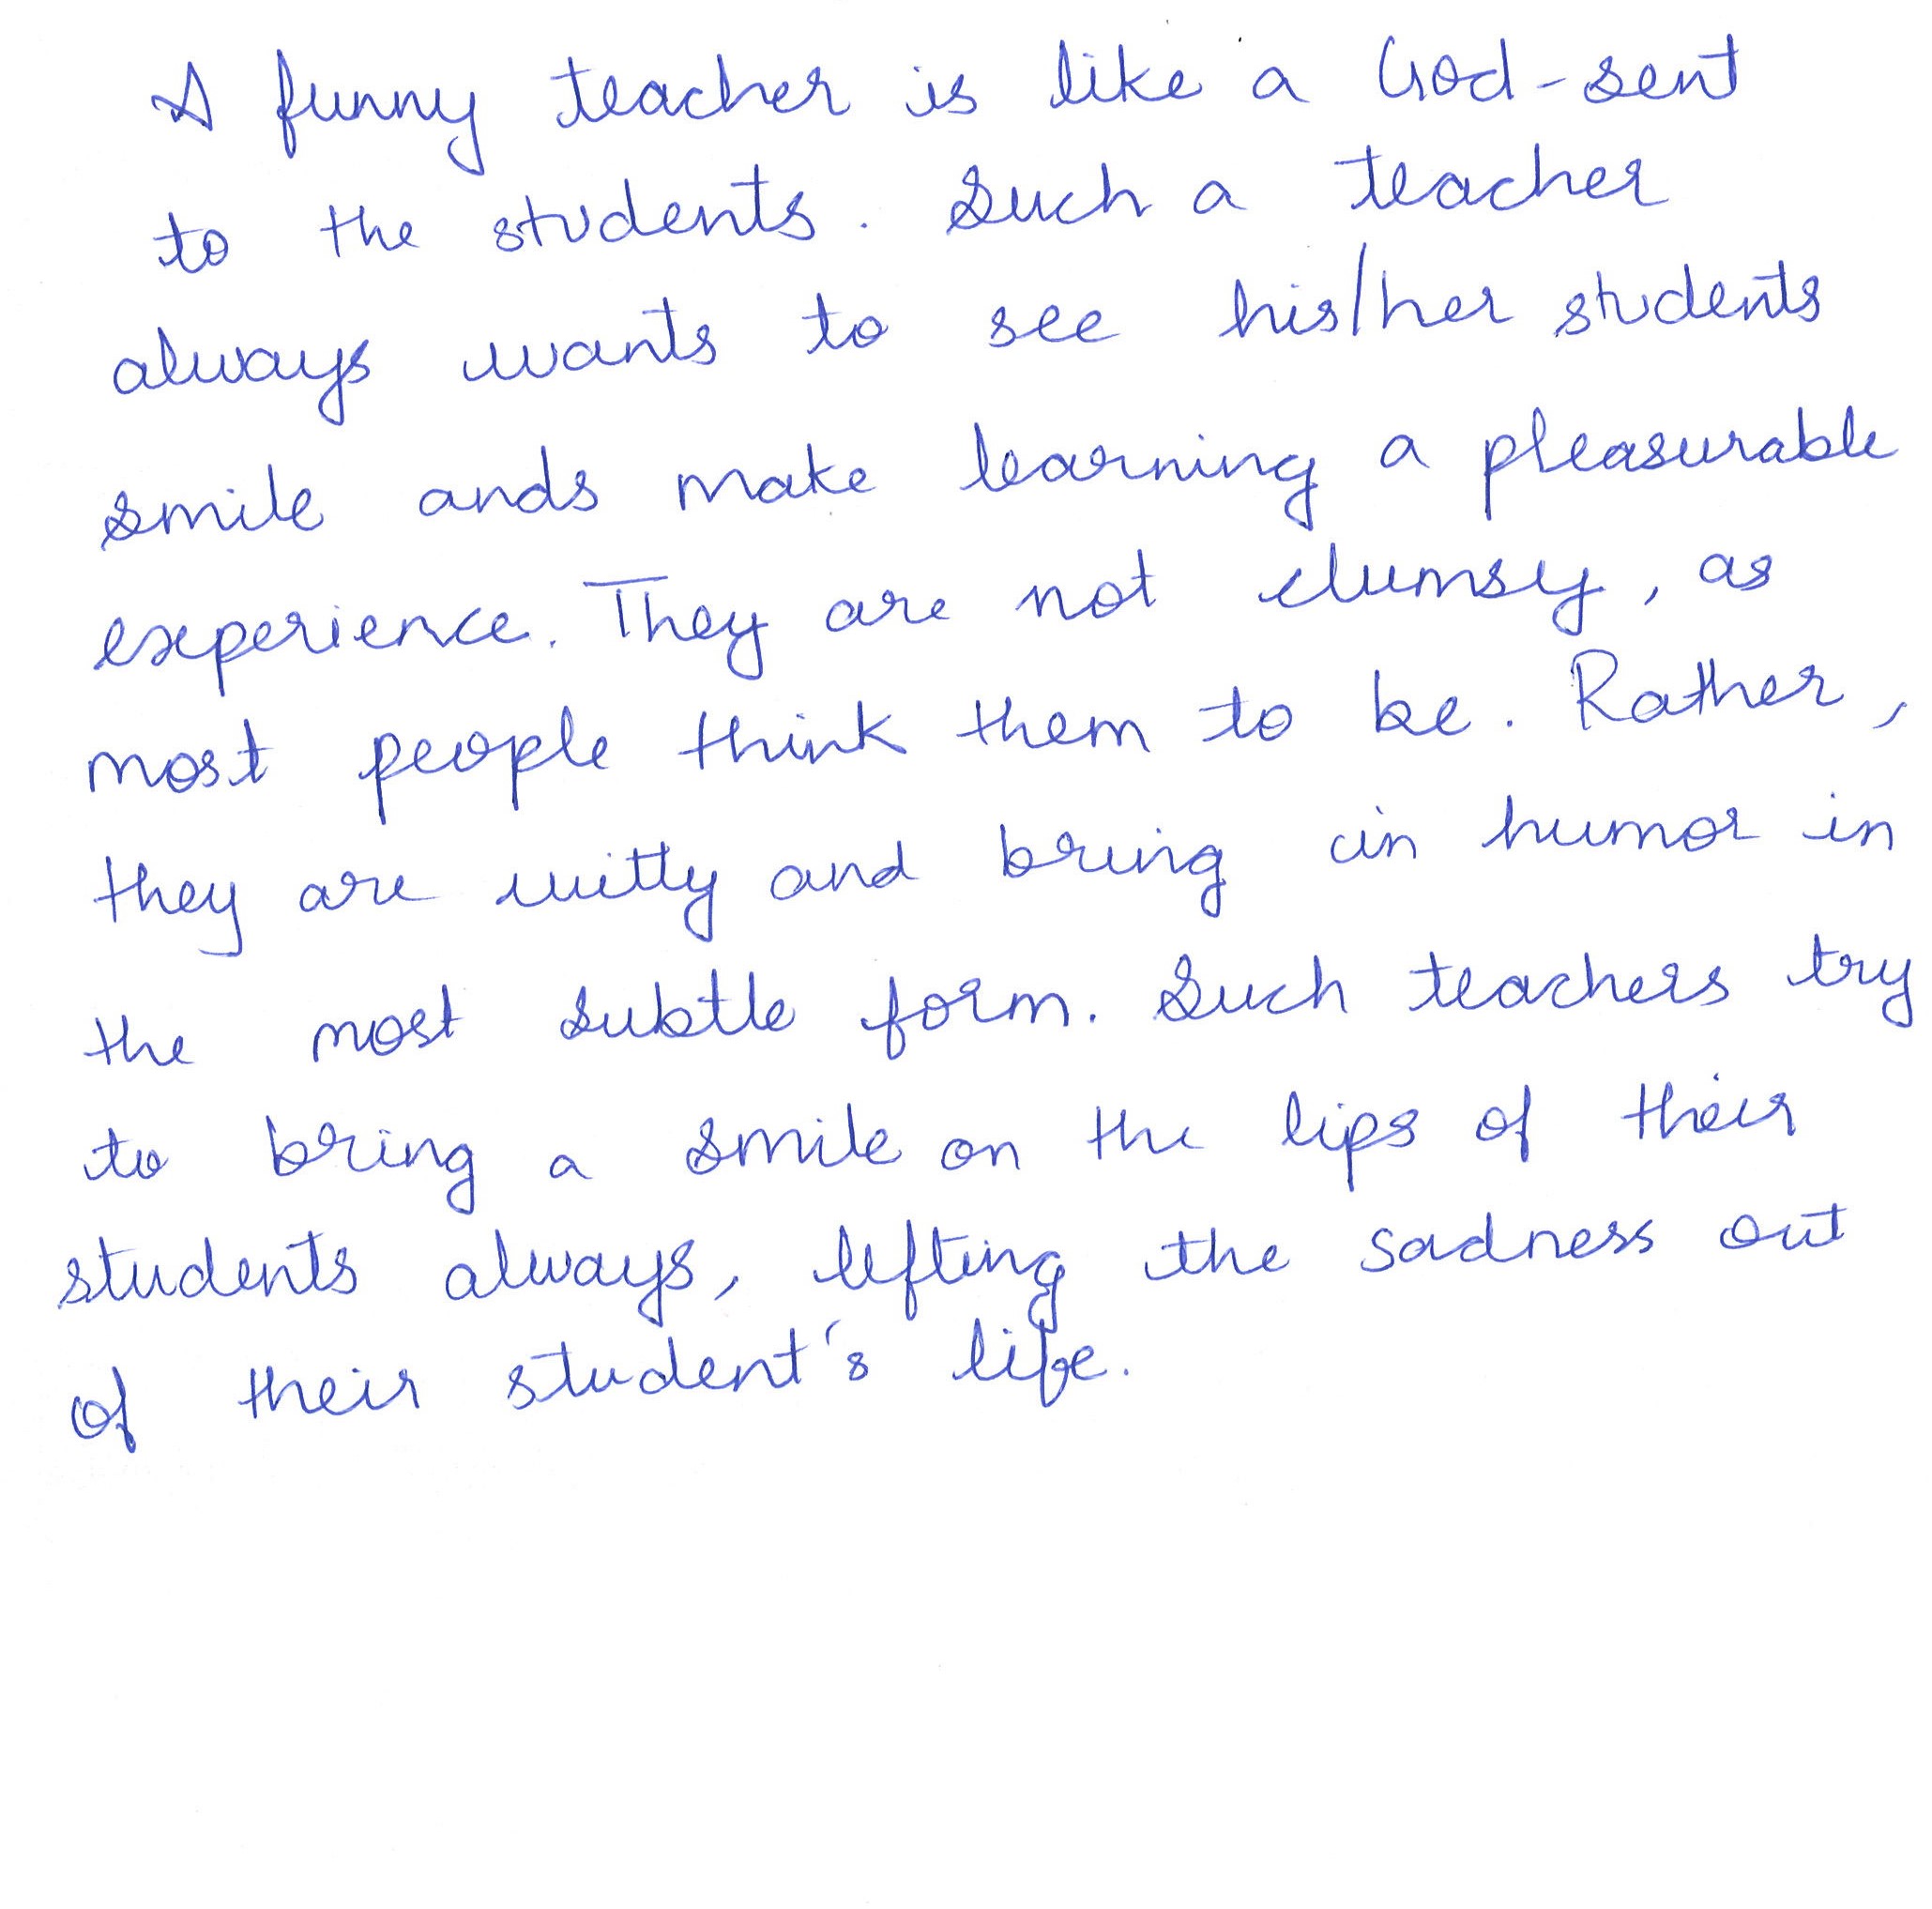 A funny teacher is like a God-sent
to the students. Such a teacher
always wants to see his/her students
smile ands make learning a pleasurable
experience. They are not clumsy, as
most people think them to be. Rather,
they are witty and bring in humor in
the most subtle form. Such teachers try
to bring a smile on the lips of their
students always, lifting the sadness out
of their student's life.